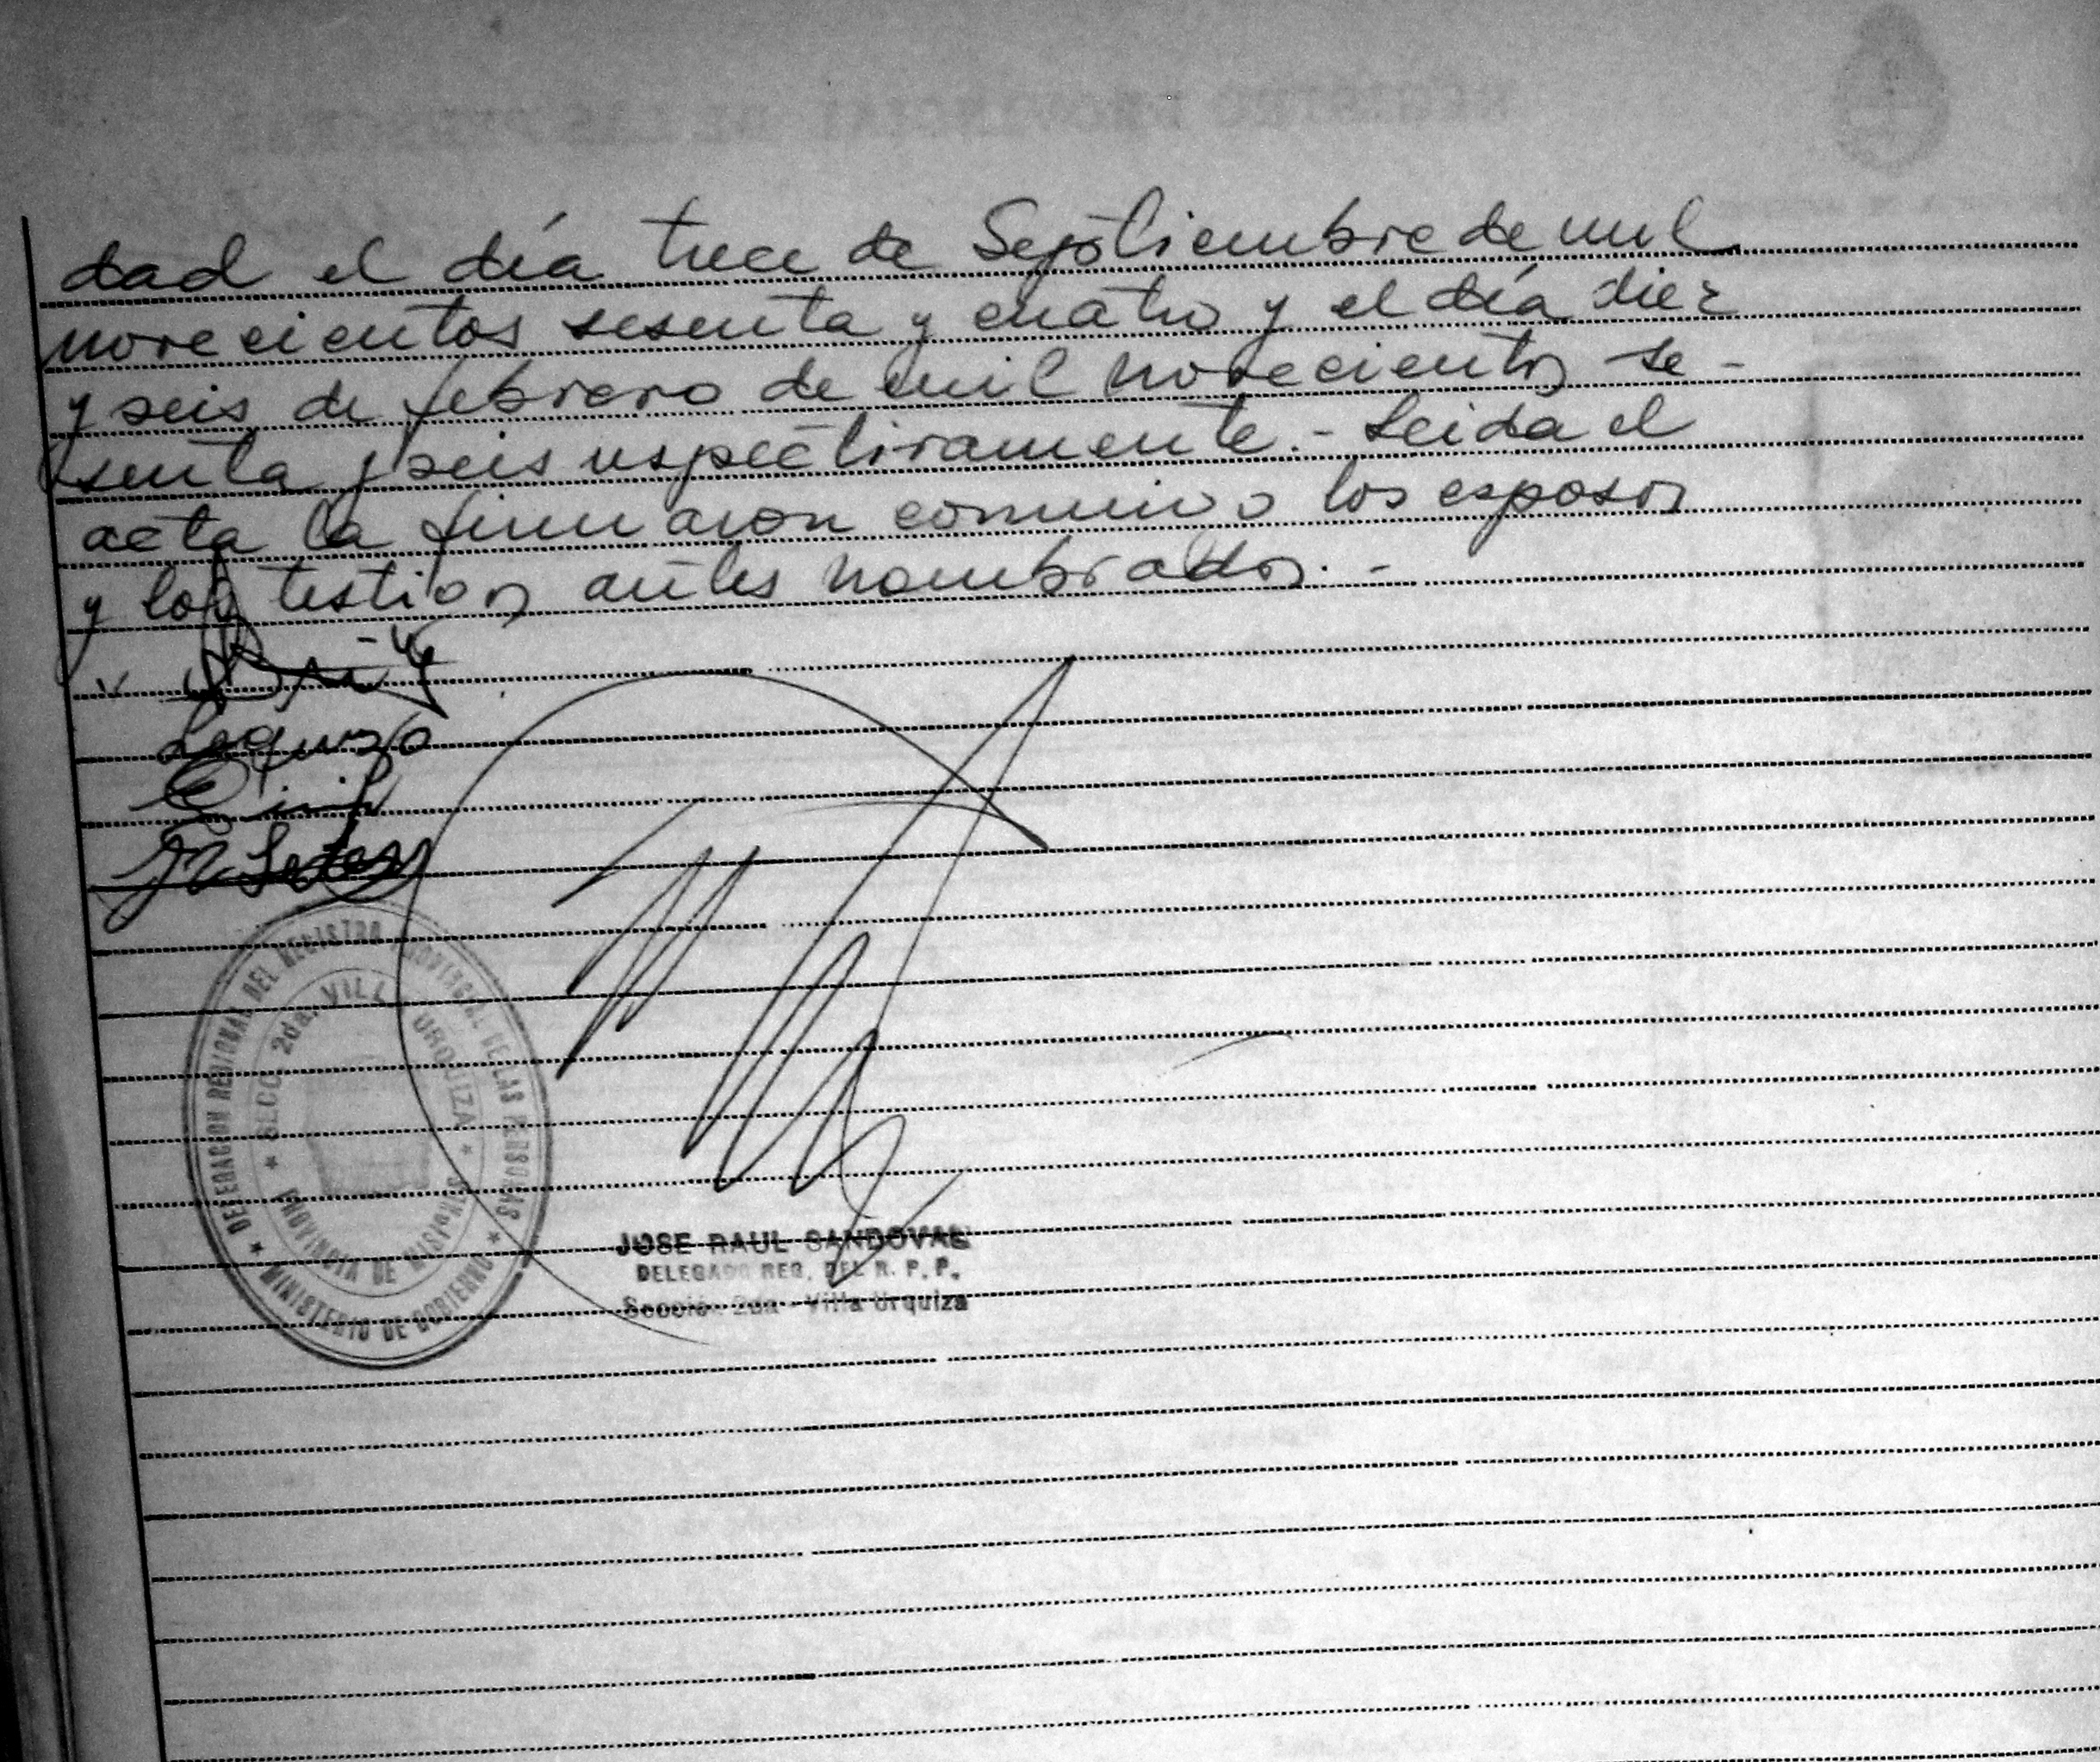 dad el día trece de Septiembre de mil
novecientos sesenta y cuatro y el día diez
y seis de febrero de mil novecientos se-
senta y seis respectivamente.- Leida el
acta la firmaron conmigo los esposos
y los testigos antes nombrados.-
DELEGACION REGIONAL DEL REGISTRO PROVINCIAL DE LAS PERSONAS
★ MINISTERIO DE GOBIERNO ★
★ SECC. 2da. VILLA URQUIZA ★
PROVINCIA DE MISIONES
JOSE RAUL SANDOVAL
DELEGADO REG. DEL R. P. P.
Sección 2da - Villa Urquiza